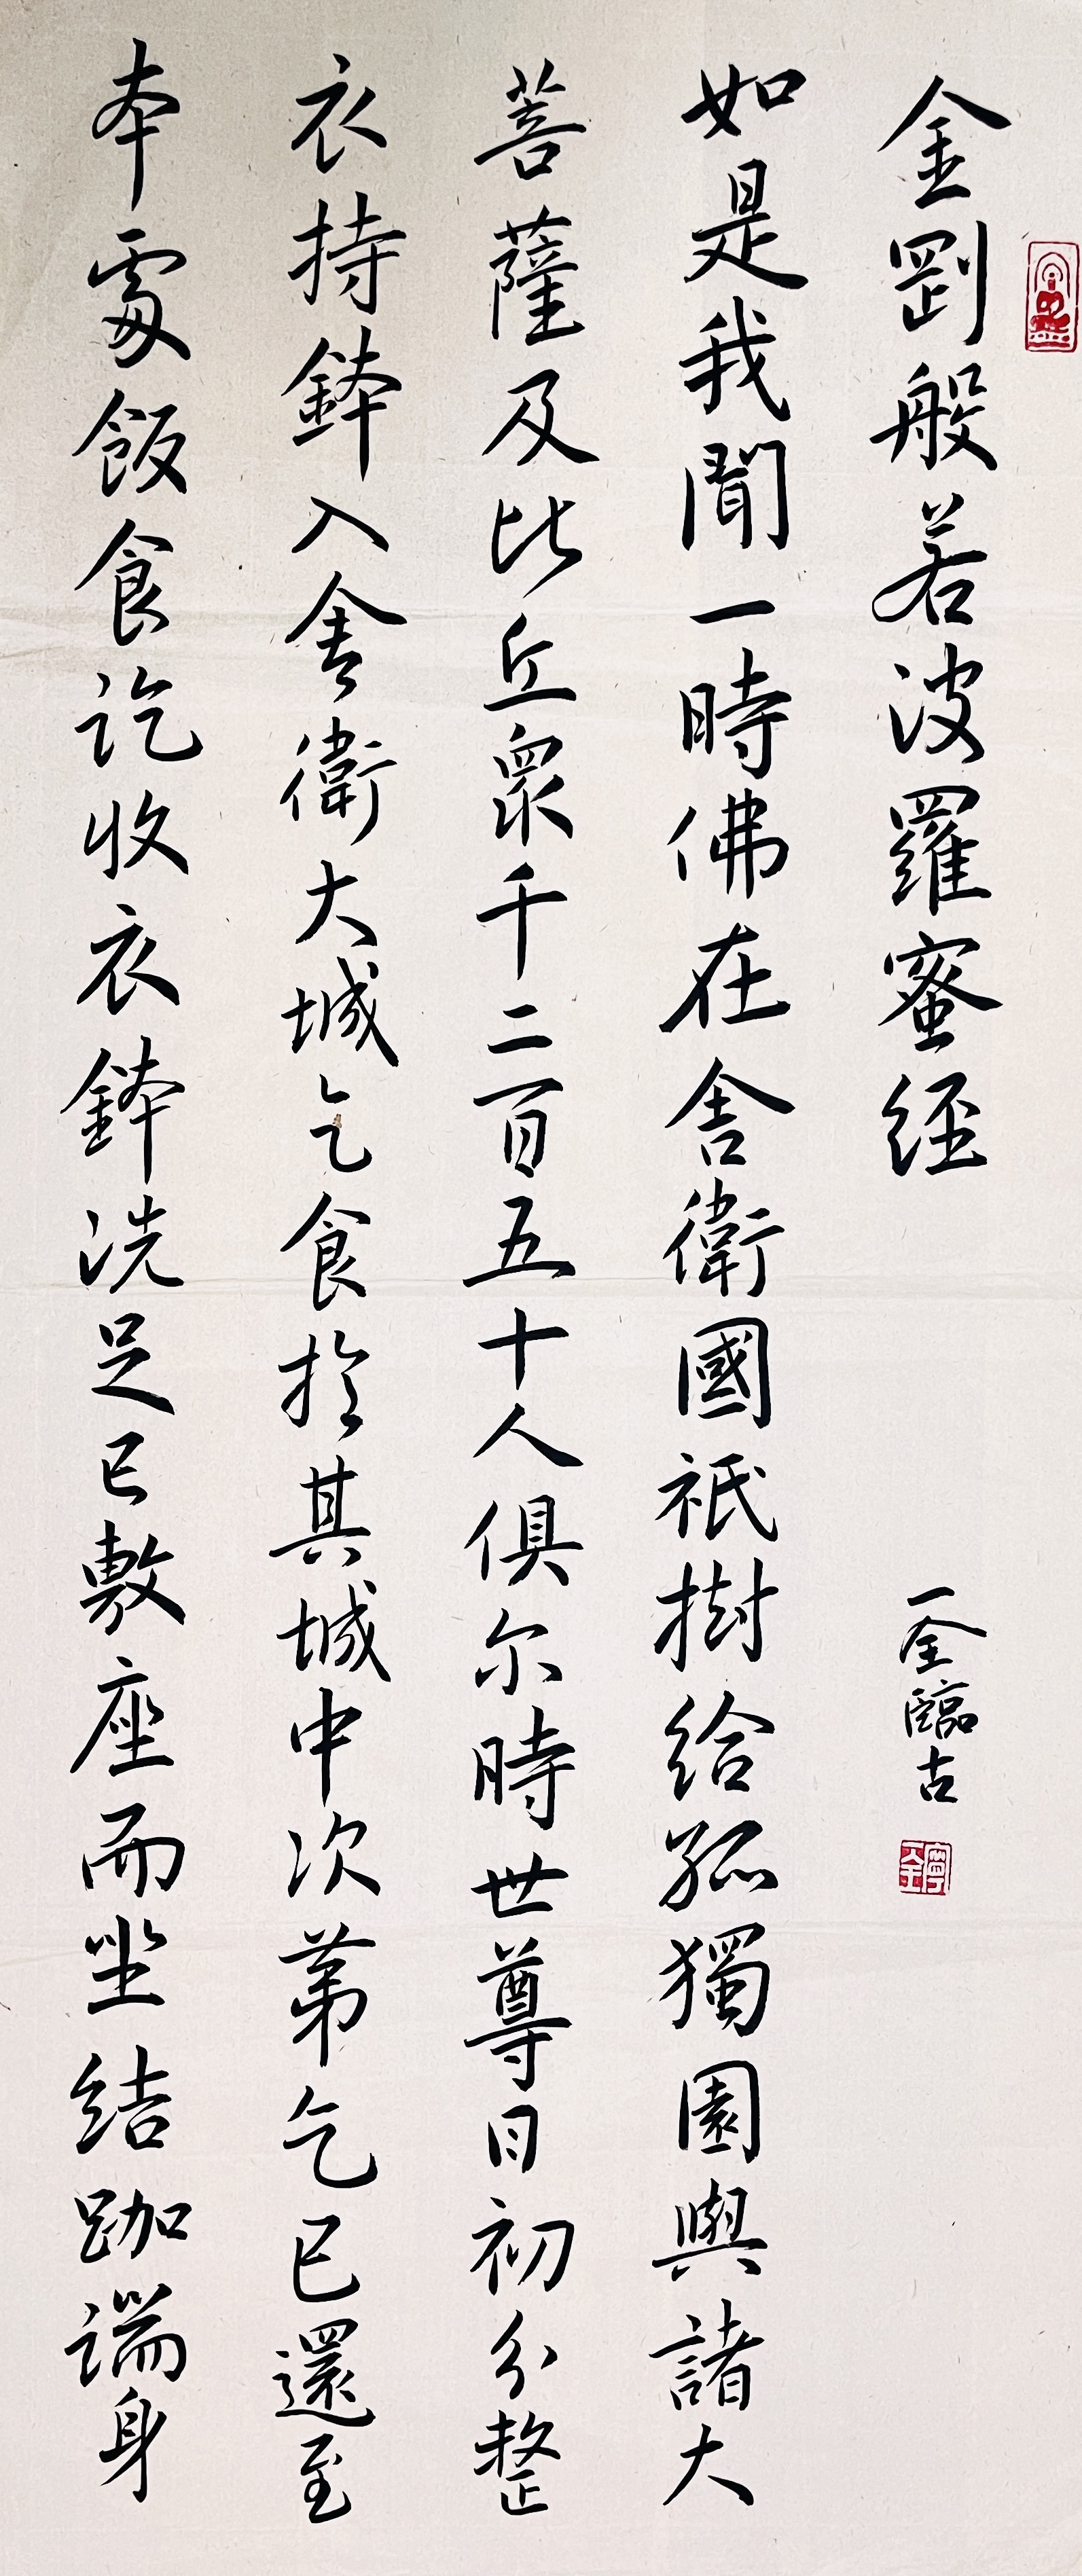 金剛般若波羅蜜經
一全臨古
如是我聞一時佛在舍衛國祇樹給孤獨園與諸大
菩薩及比丘眾千二百五十人俱尒時世尊日初分整
衣持鉢入舍衛大城乞食於其城中次第乞已還至
本處飯食訖收衣鉢洗足已敷座而坐結跏端身